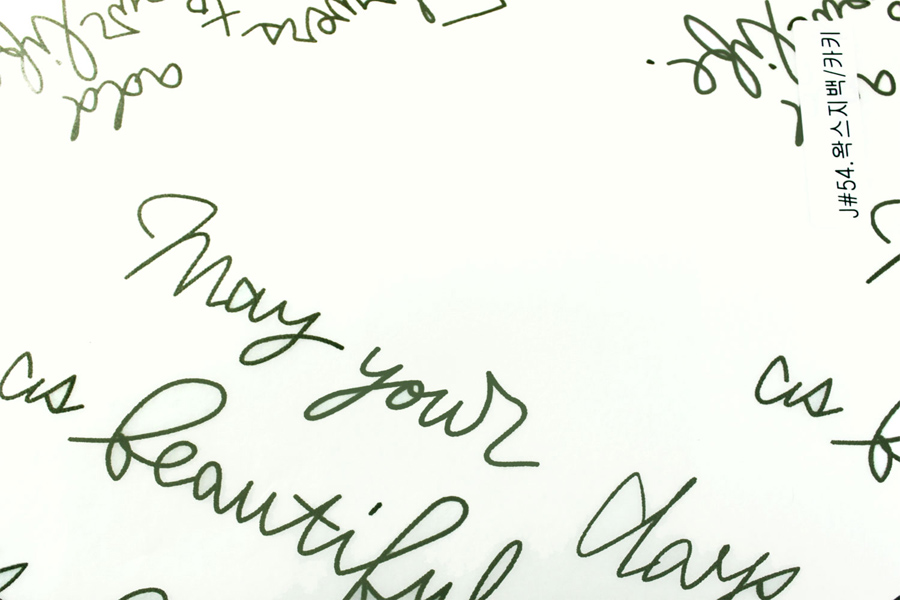 add
flowers to
your life
life.
J#54.왁스지백/카키
May your days
as beautiful
as